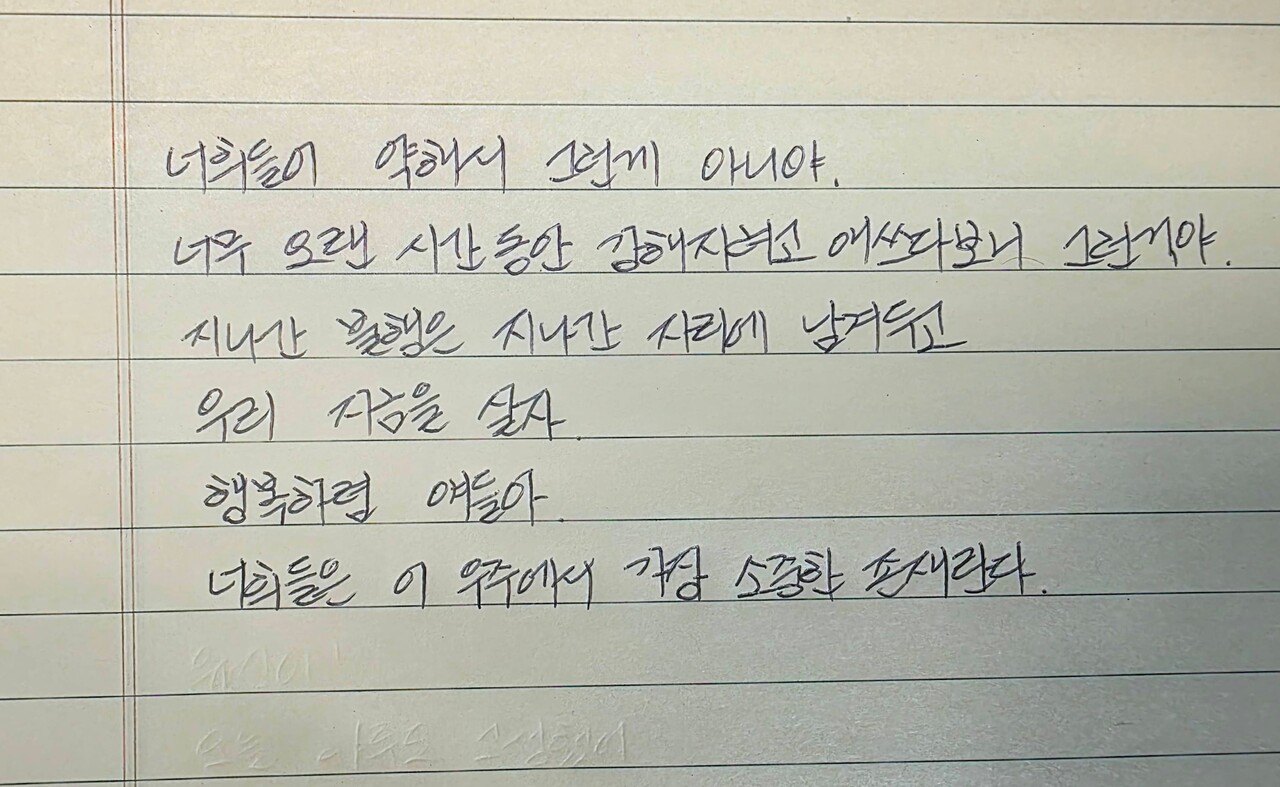 너희들이 약해서 그런게 아니야.
너무 오랜 시간동안 강해지려고 애쓰다보니 그런거야.
지나간 불행은 지나간 자리에 남겨두고
우리 지금을 살자.
행복하렴 얘들아.
너희들은 이 우주에서 가장 소중한 존재란다.